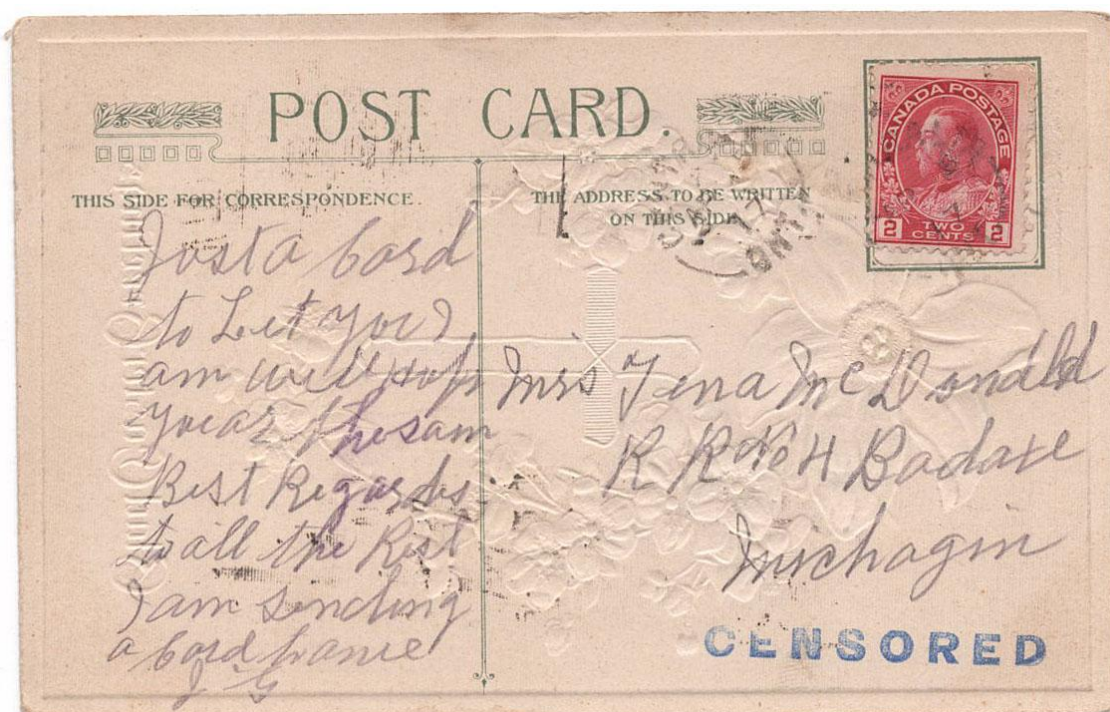 POST CARD.
THIS SIDE FOR CORRESPONDENCE.
THE ADDRESS TO BE WRITTEN
ON THIS SIDE
CANADA POSTAGE
2 TWO CENTS 2
Just a Card
to Let you I
am well hope
your the sam
Best Regards
to all the Rest
I am sending
a Card hame
J G
Mrs Tena McDonald
R R No 4 Badaxe
Michagin
CENSORED